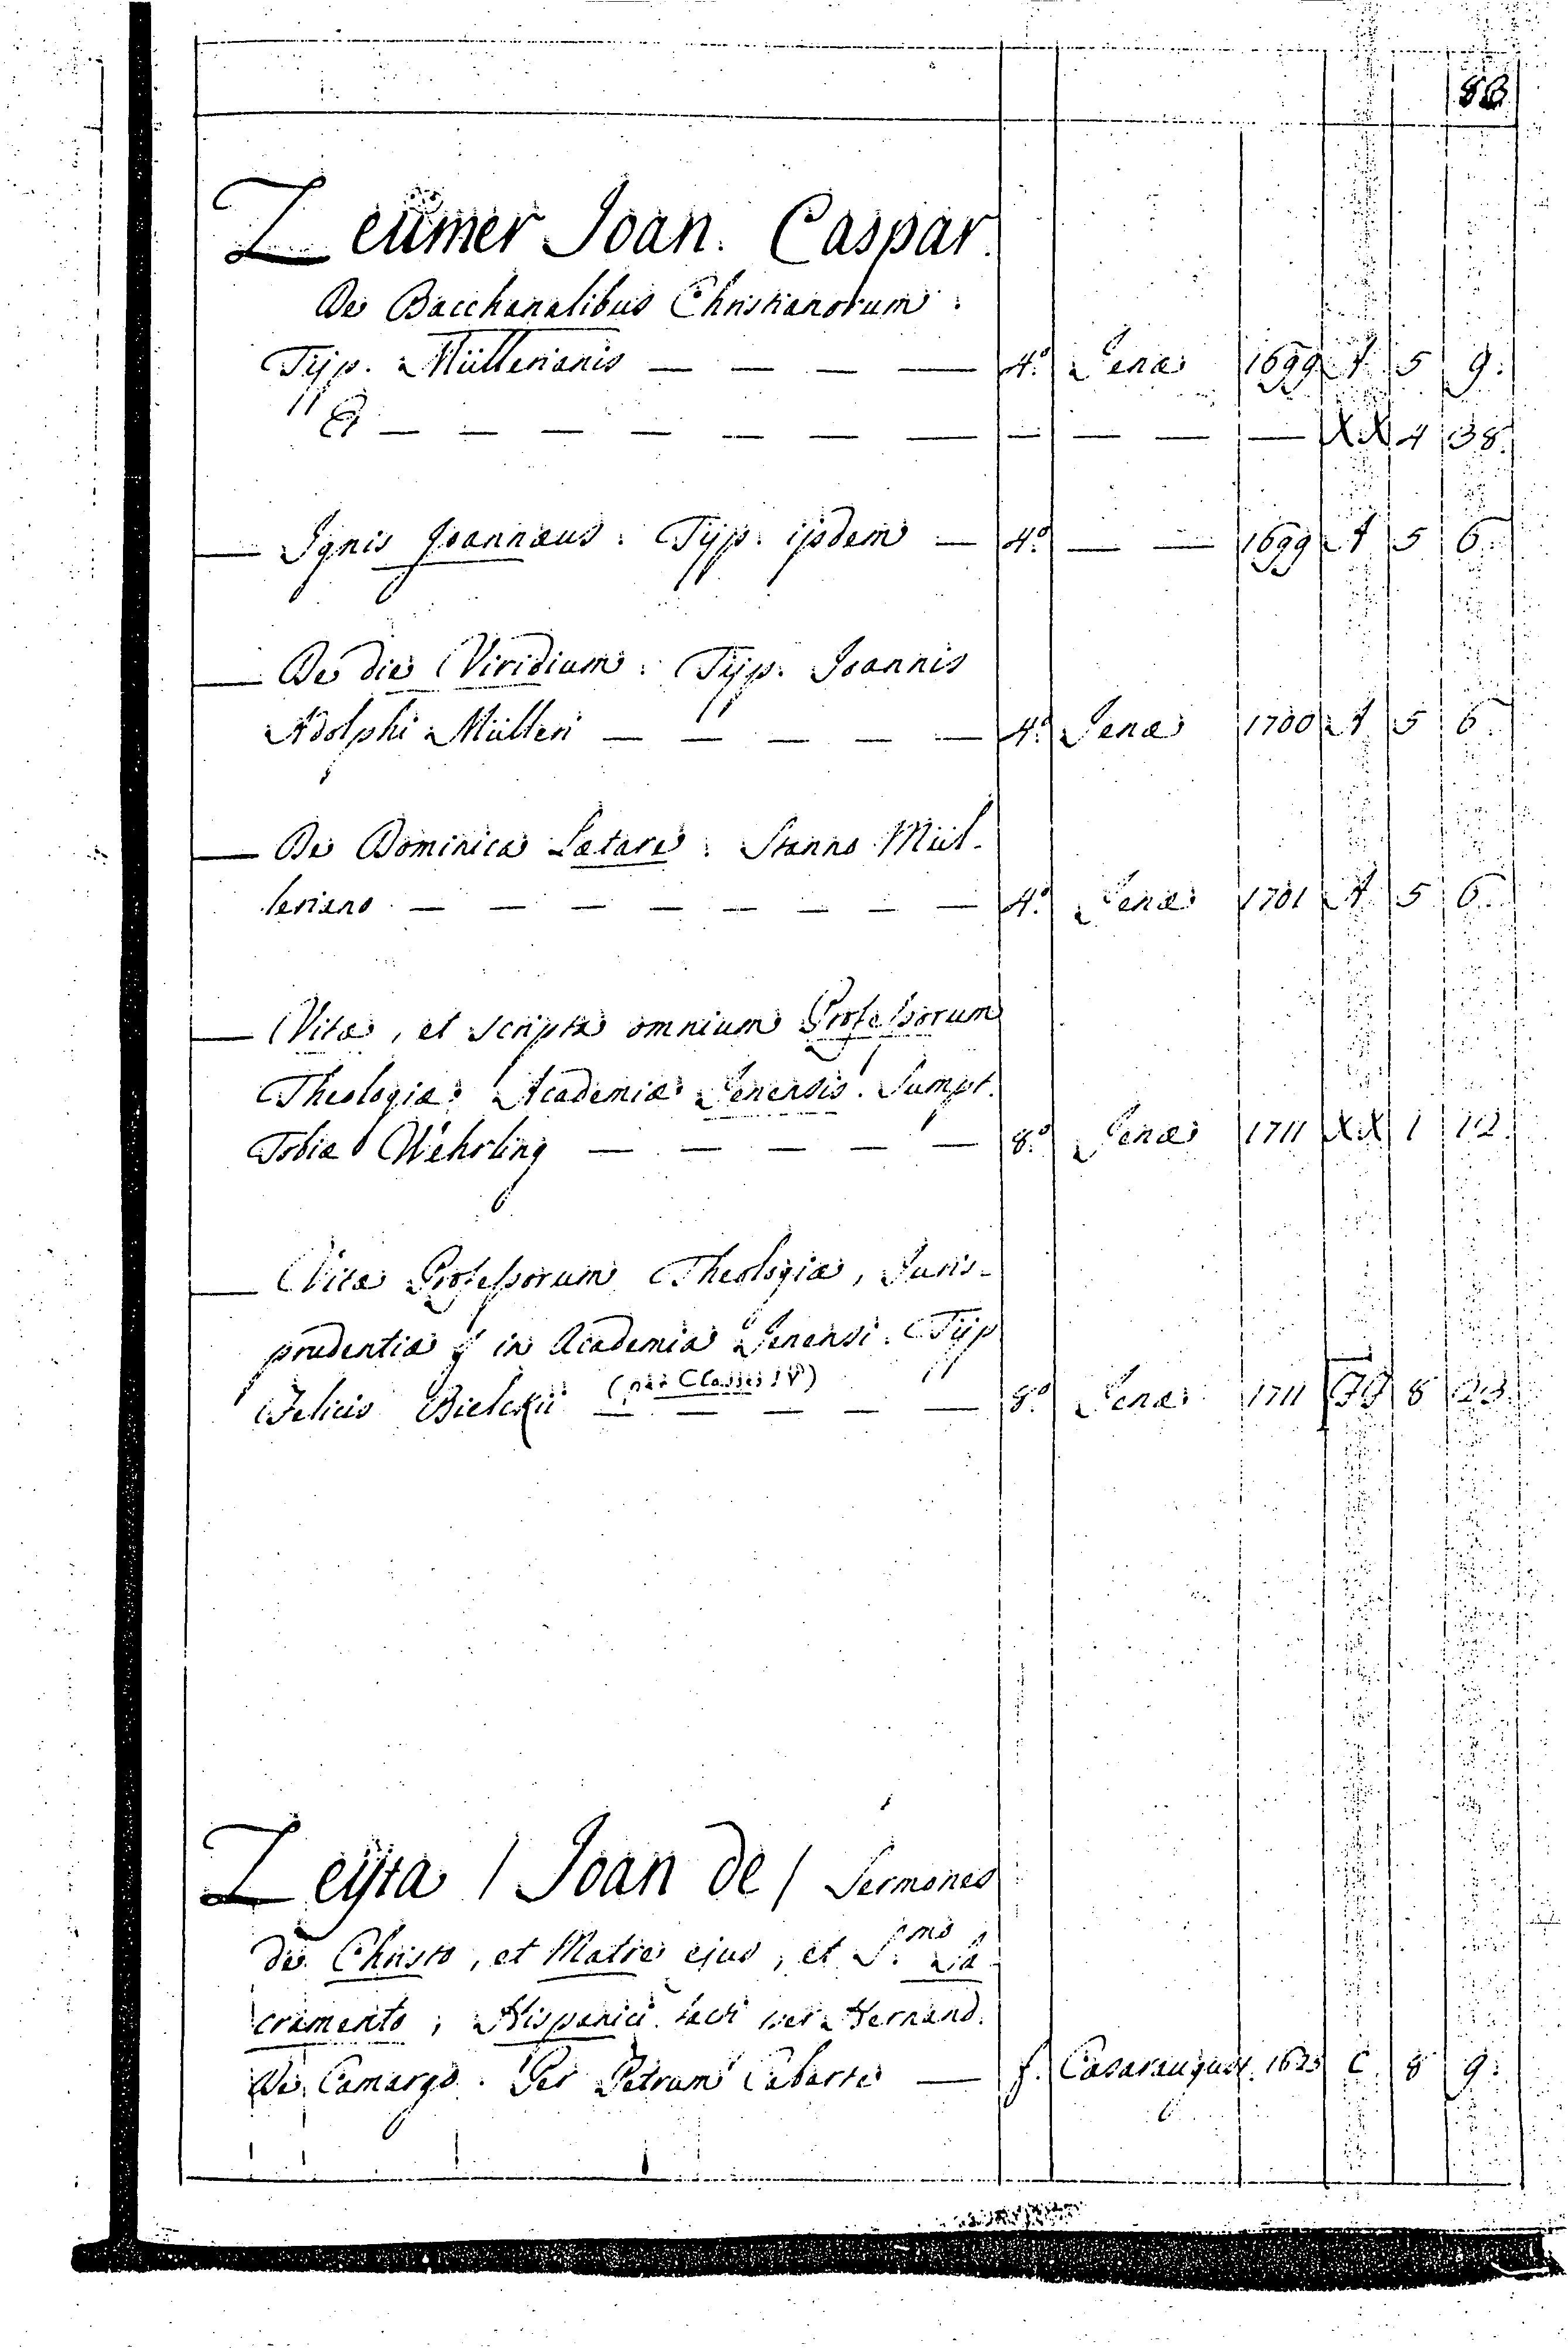 Zeumer Joan. Caspar.
De Bacchanalibus Christianorum:
Typ. Müllerianis — — — — 4.º Jenæ 1699 A 5 9.
Et — — — — — — — — — — — — XX 4 38.
— Ignis Joannæus: Typ. ijsdem — 4.º — — 1699 A 5 6.
— De die Viridium: Typ. Joannis
Adolphi Mülleri — — — — — 4.º Jenæ 1700 A 5 6.
— De Dominica Lætare: Stanno Mül-
leriano — — — — — — — — 4.º Jenæ 1701 A 5 6.
— Vitæ, et scripta omnium Professorum
Theologiæ Academiæ Jenensis. Sumpt.
Tobiæ Wehrling — — — — — 8.º Jenæ 1711 XX 1 12.
— Vitæ Professorum Theologiæ, Juris-
prudentiæ & in Academia Jenensi. Typ
Felicis Bielckii Classes IV) — — — — — 8.º Jenæ 1711 8 23.
Zeyta / Joan de / Sermones
de Christo, et Matre ejus, et S.mo Sa-
cramento, Hispanicè facti per Hernand.
De Camargo. Per Petrum Cabarte — f. Cæsaraugust. 1625 C 8 9.